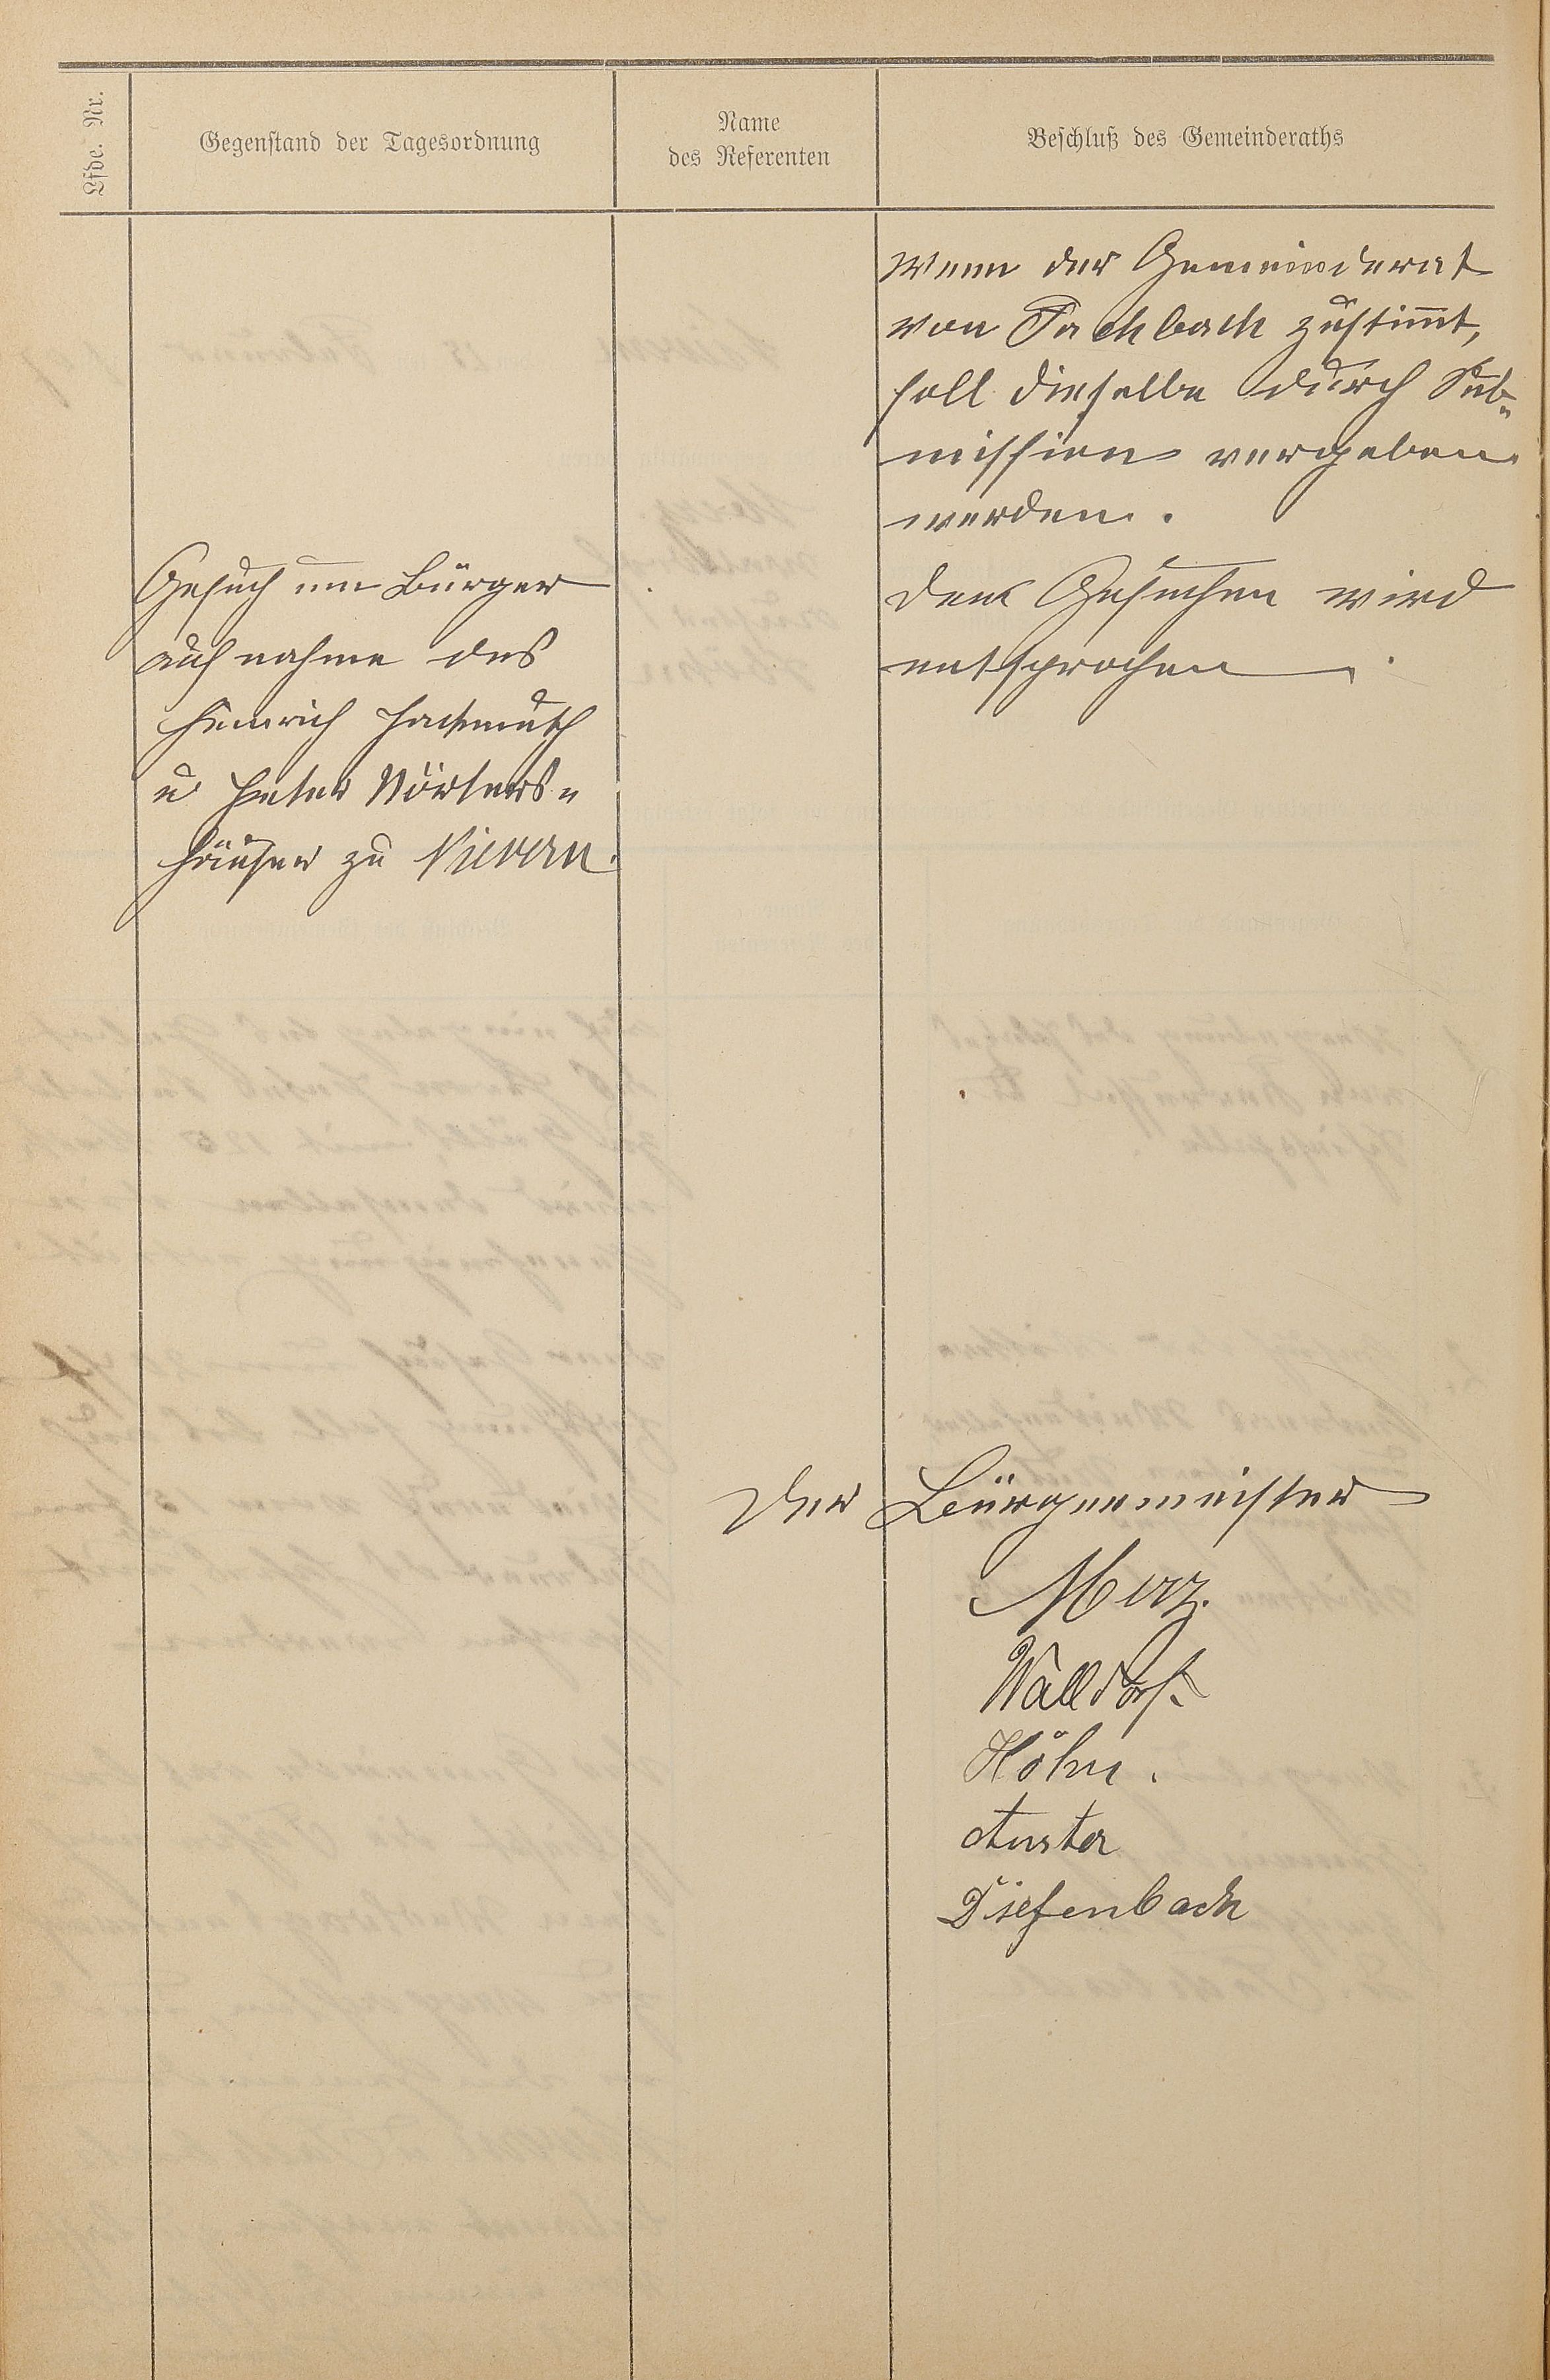 Lfde. Nr.
Gegenstand der Tagesordnung
Name
des Referenten
Beschluß des Gemeinderaths
Wenn der Gemeinderat
von Fachbach zustimmt,
soll dieselbe durch Sub-
mission vergeben
werden.
Gesuch um Bürger
aufnahme des
Heinrich Hachmuth
u Peter Wörsters-
häuser zu Nievern.
Den Gesuchen wird
entsprochen.
Der Bürgermeister
Merz.
Walldorf.
Höhn.
Auster
Diefenbach